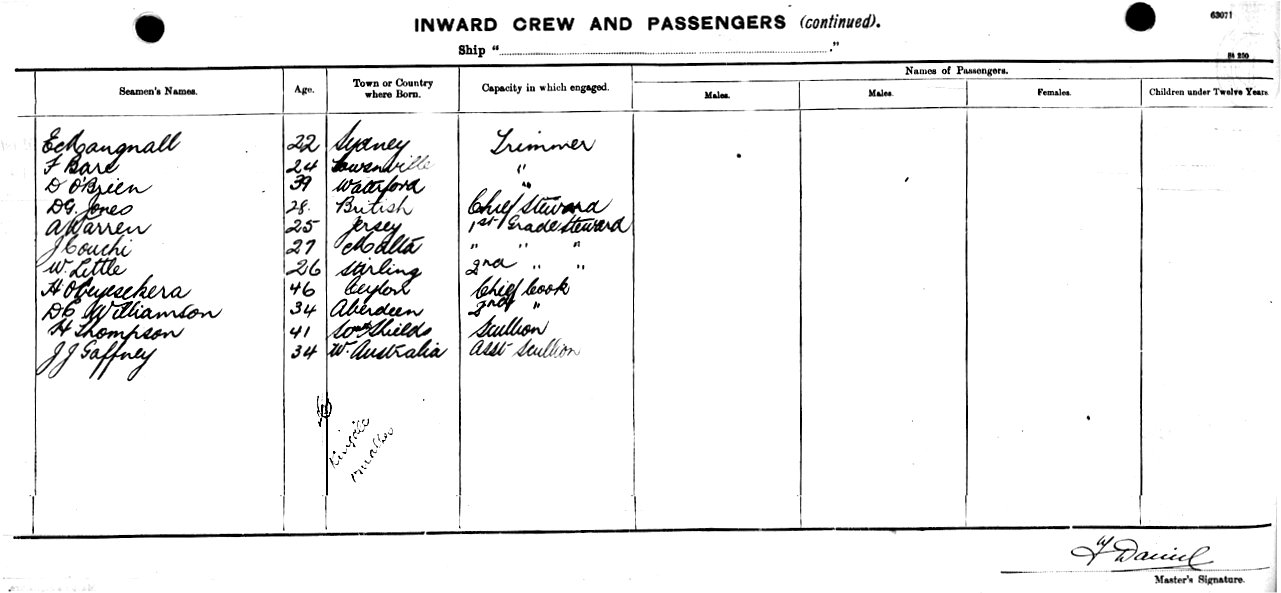 INWARD CREW AND PASSENGERS (continued).
63071
Ship "
."
Seamen's Names. Age. Town or Country where Born. Capacity in which engaged. Names of Passengers.
Males. Males. Females. Children under Twelve Years.
E Mangnall 22 Sydney Trimmer
F Bare 24 "
D O'Brien 39 Waterford "
D G. Jones 28. British Chief Steward
A Warren 25 Jersey 1st Grade Steward
J Couchi 27 Malta " " "
W. Little 26 Stirling 2nd " "
H Obeyesekera 46 Ceylon Chief Cook
D C Williamson 34 Aberdeen 2nd "
H Thompson 41 Soth Shields Scullion
J J Gaffney 34 W. Australia Asst Scullion
Daniel
Master's Signature.